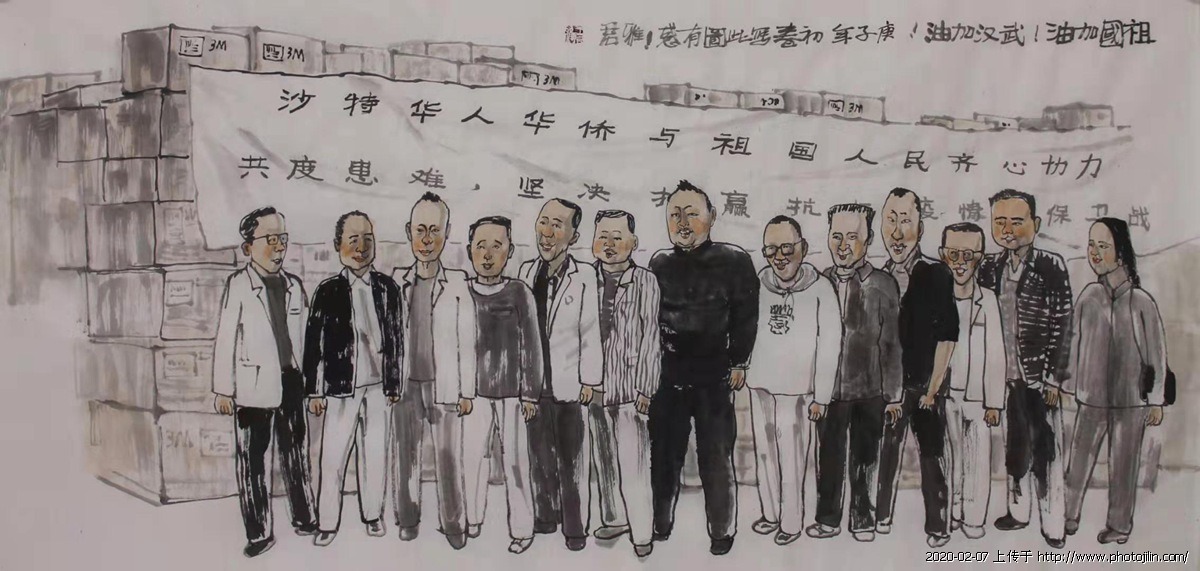 祖國加油！武汉加油！庚子年初春写此圖有感！雅君
3M
3M
3M
3M
沙特华人华侨与祖国人民齐心协力
共度患难，坚决打赢抗 疫情保卫战
2020-02-07 上传于 http://www.photojilin.com/